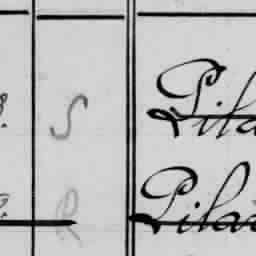 S Pila
R Pila